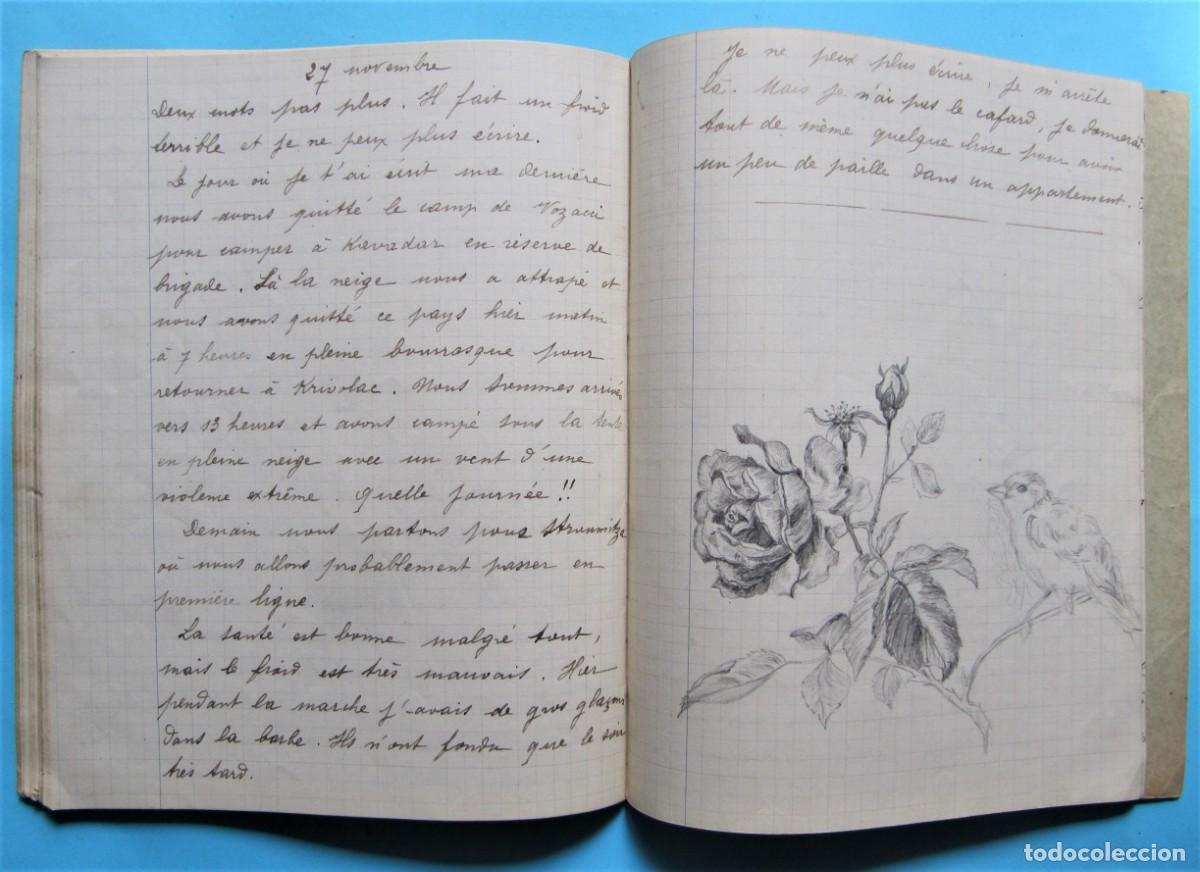 27 novembre
Deux mots pas plus. Il fait un froid
terrible et je ne peux plus écrire.
Le jour où je t'ai écrit ma dernière
nous avons quitté le camp de Vozaci
pour camper à Kavadar en réserve de
brigade. Là la neige nous a attrapé et
nous avons quitté ce pays hier matin
à 7 heures en pleine bourrasque pour
retourner à Krivolac. Nous sommes arrivés
vers 13 heures et avons campé sous la tente
en pleine neige avec un vent d'une
violence extrême. Quelle journée!!
Demain nous partons pour Stroumitza
où nous allons probablement passer en
première ligne.
La santé est bonne malgré tout,
mais le froid est très mauvais. Hier
pendant la marche j'avais de gros glaçons
dans la barbe. Ils n'ont fondu que le soir
très tard.
Je ne peux plus écrire, je m'arrête
là. Mais je n'ai pas le cafard, je donnerai
tout de même quelque chose pour avoir
un peu de paille dans un appartement.
todocoleccion